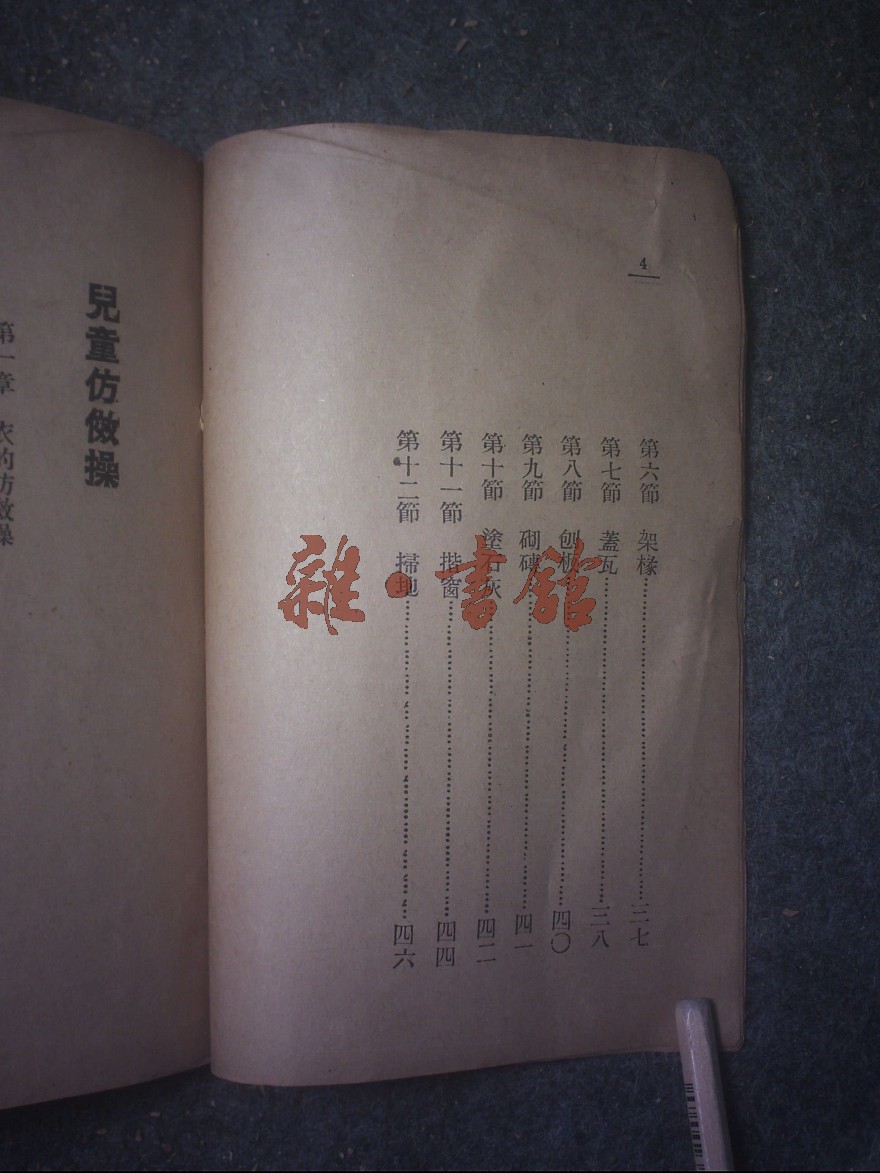 4
第六節 架椽……三七
第七節 蓋瓦……三八
第八節 刨板……四〇
第九節 砌磚……四一
第十節 塗石灰……四二
第十一節 揩窗……四四
第十二節 掃地……四六
兒童仿倣操
第一章 衣的仿倣操
雜·書館